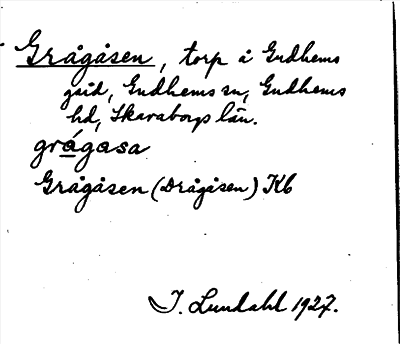 Grågåsen, torp å Gudhems
gård, Gudhems sn, Gudhems
hd, Skaraborgs län.
grágasa
Grågåsen (Drågåsen) Kb
I. Lundahl 1927.